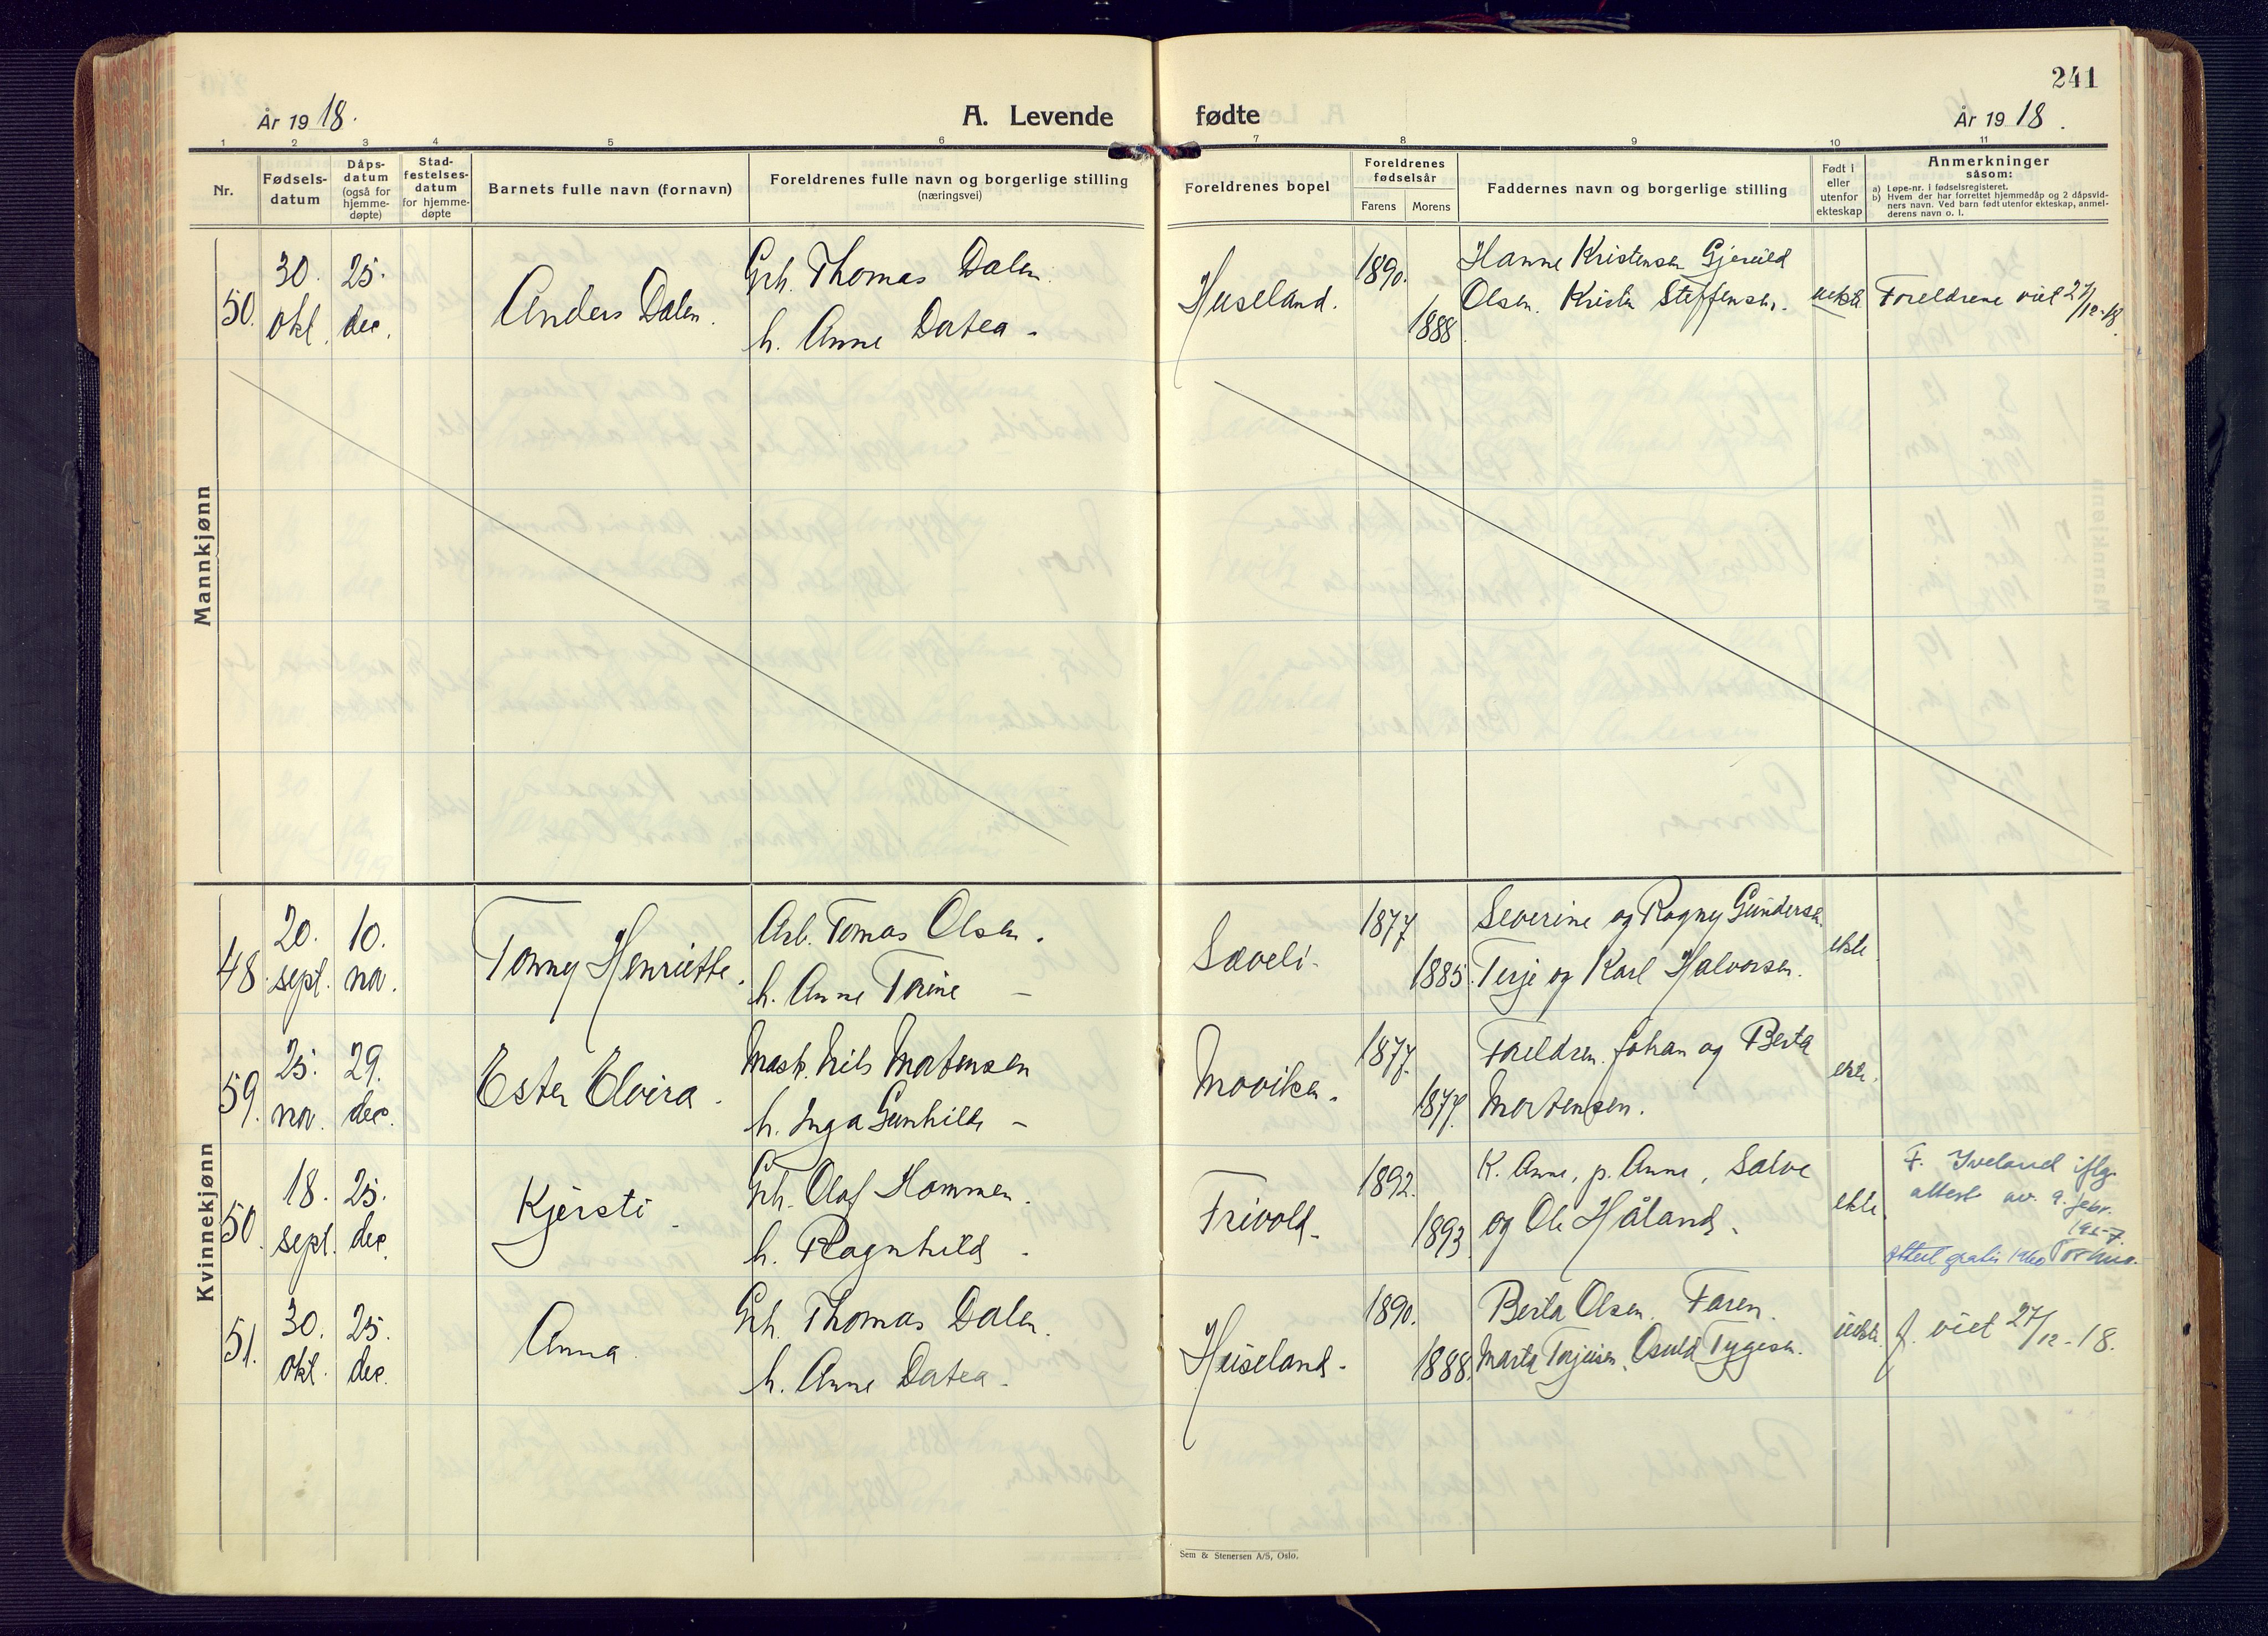 241
År 1918.
A. Levende
fødte
År 1918.
1 2 3 4 5 6 7 8 9 10 11
Nr.
Fødsels-
datum
Dåps-
datum
(også for
hjemme-
døpte)
Stad-
festelses-
datum
for hjemme-
døpte
Barnets fulle navn (fornavn)
Foreldrenes fulle navn og borgerlige stilling
(næringsvei)
Foreldrenes bopel
Foreldrenes
fødselsår
Farens
Morens
Faddernes navn og borgerlige stilling
Født i
eller
utenfor
ekteskap
Anmerkninger
såsom:
a) Løpe-nr. i fødselsregisteret.
b) Hvem der har forrettet hjemmedåp og 2 dåpsvid-
ners navn. Ved barn født utenfor ekteskap, anmel-
derens navn o. l.
Mannkjønn
50.
30.
okt.
25.
dec.
Anders Dalen.
Grh. Thomas Dalen.
h. Anne Datea -
Huseland.
1890.
1888.
Hanne Kristensen Gjerald
Olsen. Kristen Steffensen.
uekte
Foreldrene viet 27/12-18.
Kvinnekjønn
48.
20.
sept.
10.
no.
Tonny Henriette.
Arb. Tomas Olsen.
h. Anne Torine -
Sæveli.
1877
1885.
Severine og Ragny Gundersen.
Terje og Karl Halvorsen.
ekte
59.
25.
no.
29.
dec.
Ester Elvira.
Mask. Nils Mortensen
h. Inga Gunhilde -
Moviken.
1877.
1877.
Foreldren. Johan og Berta
Mortensen.
ekte.
50.
18.
sept.
25.
dec.
Kjersti.
Grh. Olaf Hommen.
h. Ragnhild.
Frivold.
1892.
1893
K. Anne, p. Anne, Salve
og Ole Håland.
ekte.
F. Iveland iflg.
attest av 9. febr.
1957.
Attest gratis 1960
51.
30.
okt.
25.
dec.
Anna.
Grh. Thomas Dalen.
h. Anne Datea.
Huseland.
1890.
1888.
Berta Olsen. Faren.
Marta Terjeisen, Osuld Tygesen.
uekte.
f. viet 27/12-18.
Sem & Stenersen A/S, Oslo.